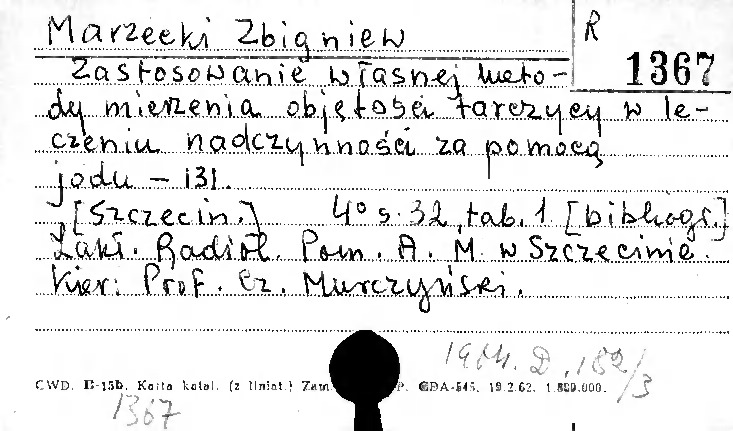 Marzecki Zbigniew
R
1367
Zastosowanie własnej meto-
dy mierzenia objętości tarczycy w le-
czeniu nadczynności za pomocą
jodu - 131.
[Szczecin.] 4° s. 32, tab. 1 [bibliogr.]
Zakł. Radiol. Pom. A. M. w Szczecinie.
Kier: Prof. Cz. Murczyński.
1964. D. 182/3
CWD. B-15b. Karta katal. (z liniat.) Zam P. GDA-545. 19.2.62. 1.800.000.
1367